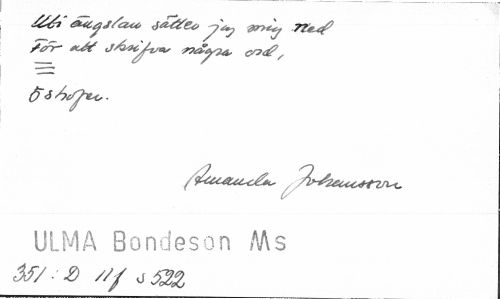 Uti ängslan sätter jag mig ned
För att skrifva några ord,
5 strofer.
Amanda Johansson
ULMA Bondeson Ms
351: D 11f s 522